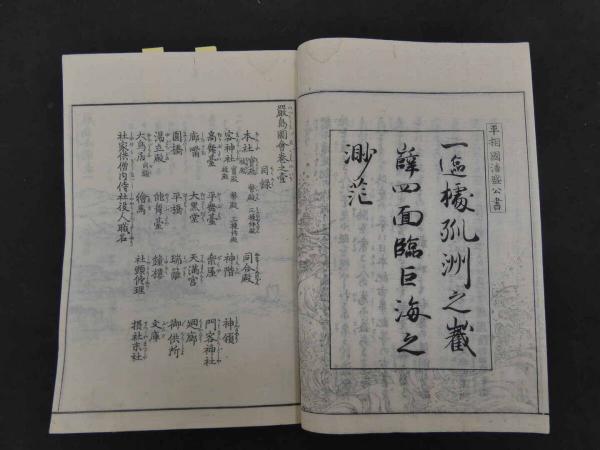 平相國清盛公書
一區據孤洲之巖
嶭四面臨巨海之
渺茫
嚴島圖會卷之壹
目錄
本社 同合殿 神領
客神社 神階 門客神社
高舞臺 平舞臺 樂屋 廻廊
廊 大黑堂 天滿宮 御供所
圓橋 平橋 瑞籬 文庫
湯立殿 能舞臺 鐘樓 攝社末社
大鳥居 繪馬 社頭修理
社家供僧內侍社役人職名